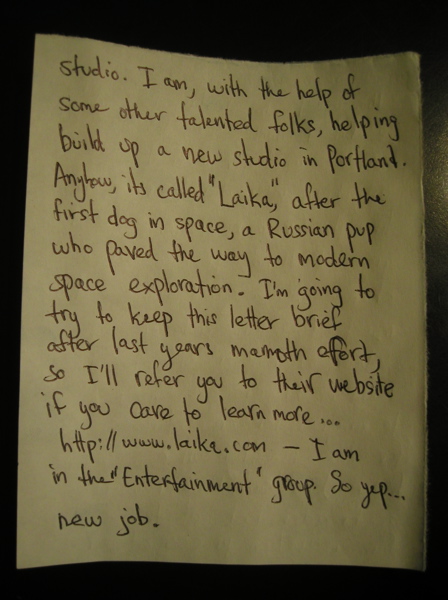 studio. I am, with the help of
some other talented folks, helping
build up a new studio in Portland.
Anyhow, its called "Laika", after the
first dog in space, a Russian pup
who paved the way to modern
space exploration. I'm going to
try to keep this letter brief
after last years mamoth effort,
so I'll refer you to their website
if you care to learn more...
http://www.laika.com — I am
in the "Entertainment" group. So yep...
new job.